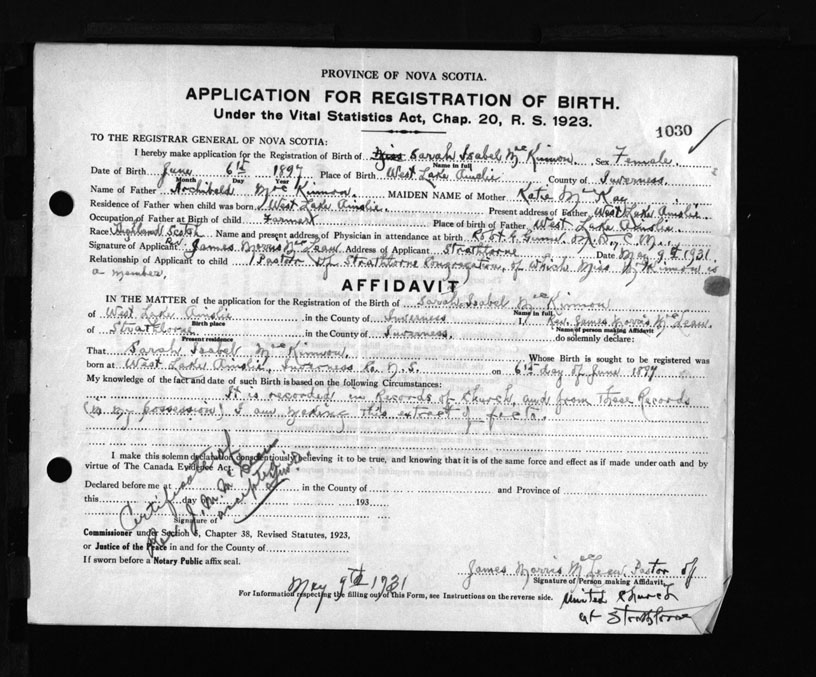 PROVINCE OF NOVA SCOTIA.
APPLICATION FOR REGISTRATION OF BIRTH.
Under the Vital Statistics Act, Chap. 20, R. S. 1923.
1030
TO THE REGISTRAR GENERAL OF NOVA SCOTIA:
I hereby make application for the Registration of Birth of Miss Sarah Isabel McKinnon. Sex Female.
Name in full
Date of Birth June 6th 1897 Place of Birth West Lake Ainslie County of Inverness.
Month Day Year
Name of Father Archibald MacKinnon. MAIDEN NAME of Mother Katie McKay
Residence of Father when child was born West Lake Ainslie. Present address of Father West Lake Ainslie.
Occupation of Father at Birth of child Farmer Place of birth of Father West Lake Ainslie.
Race Highland Scotch Name and present address of Physician in attendance at birth Robt. Gunn M.D., C.M.
Signature of Applicant Rev James Morris McLean Address of Applicant Strathlorne Date May 9th 1931.
Relationship of Applicant to child Pastor of Strathlorne Congregation, of which Miss McKinnon is
a member.
AFFIDAVIT
IN THE MATTER of the application for the Registration of the Birth of Sarah Isabel McKinnon
Name in full.
of West Lake Ainslie in the County of Inverness I, Rev. James Morris McLean.
Birth place Name of Person making Affidavit
of Strathlorne in the County of Inverness. do solemnly declare:
Present residence
That Sarah Isabel McKinnon. Whose Birth is sought to be registered was
born at West Lake Ainslie, Inverness Co. N.S. on 6th day of June 1897
My knowledge of the fact and date of such Birth is based on the following Circumstances:
It is recorded in Records of Church, and from these Records
(in my possession) I am making this extract of facts.
I make this solemn declaration conscientiously believing it to be true, and knowing that it is of the same force and effect as if made under oath and by
virtue of The Canada Evidence Act.
Certificate of
Rev. J. M. McLean
accepted
Declared before me at in the County of and Province of
this day of 193
Signature of
Commissioner under Section 8, Chapter 38, Revised Statutes, 1923,
or Justice of the Peace in and for the County of
If sworn before a Notary Public affix seal.
James Morris McLean, Pastor of
Signature of Person making Affidavit.
May 9th 1931
For Information respecting the filling out of this Form, see Instructions on the reverse side.
United Church
at Strathlorne